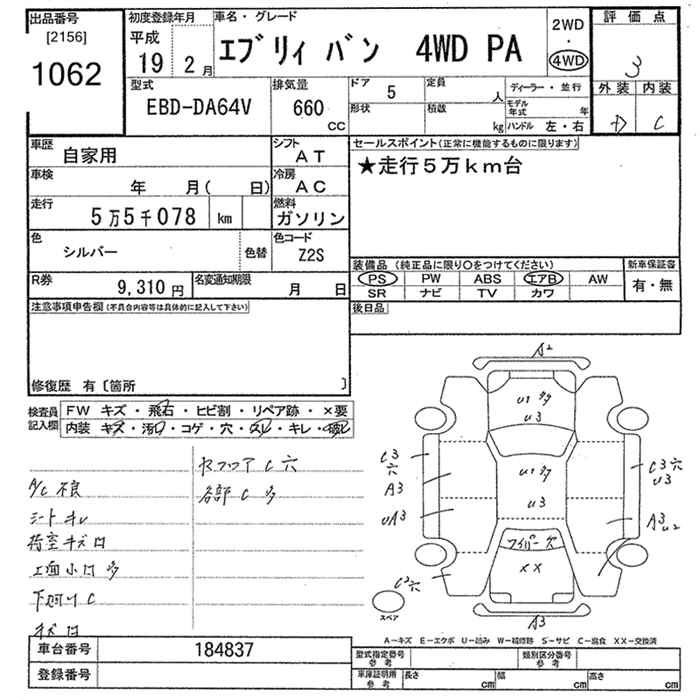 出品番号
[2156]
1062
初度登録年月
平成
19 2月
車名・グレード
エブリィ バン 4WD PA
2WD
・
4WD
評価点
3
型式
EBD-DA64V
排気量
660
CC
ドア
5
形状
定員
人
積載
kg
ディーラー・並行
モデル年式 年
ハンドル 左・右
外装 内装
D C
車歴
自家用
シフト
AT
セールスポイント(正常に機能するものに限ります)
★走行5万km台
車検
年 月( 日)
冷房
AC
走行
5万5千078 km
燃料
ガソリン
色
シルバー
色替
色コード
Z2S
R券
9,310円
名変通知期限
月 日
装備品(純正品に限り○をつけてください)
PS PW ABS エアB AW
SR ナビ TV カワ
新車保証書
有・無
注意事項申告欄(不具合内容等は具体的に記入して下さい)
後日品
修復歴 有〔箇所 〕
検査員記入欄
FW キズ・飛石・ヒビ割・リペア跡・×要
内装 キズ・汚れ・コゲ・穴・スレ・キレ・破れ
セフロア C 穴
A/C 不良
各部 C 多
シート キレ
荷室キズ凹
上面小凹多
下廻りC
A2
U1 多
U3
C3
穴
A3
UA3
U1 多
U3
C3穴
U3
A3
U2
ワイパー 穴
XX
C2穴
スペア
A3
A-キズ E-エクボ U-凹み W-補修跡 S-サビ C-腐食 XX-交換済
車台番号
184837
登録番号
型式指定番号
参考
類別区分番号
参考
車庫証明用
参考
長さ cm
幅 cm
高さ cm